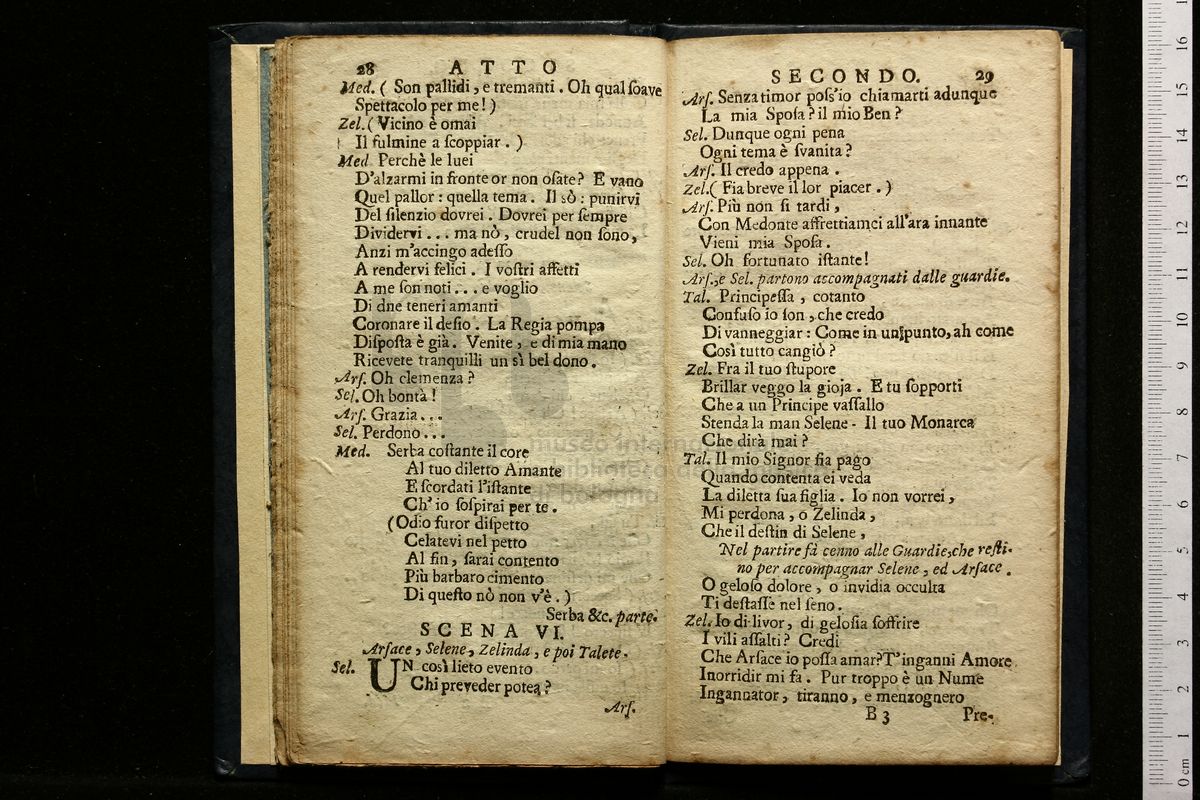 28 ATTO
Med. ( Son pallidi, e tremanti. Oh qual ſoave
Spettacolo per me! )
Zel. ( Vicino è omai
Il fulmine a ſcoppiar. )
Med. Perchè le luei
D'alzarmi in fronte or non oſate? E vano
Quel pallor: quella tema. Il sò: punirvi
Del ſilenzio dovrei. Dovrei per ſempre
Dividervi... ma nò, crudel non ſono,
Anzi m'accingo adeſſo
A rendervi felici. I voſtri affetti
A me ſon noti... e voglio
Di dne teneri amanti
Coronare il deſio. La Regia pompa
Diſpoſta è già. Venite, e di mia mano
Ricevete tranquilli un sì bel dono.
Arſ. Oh clemenza?
Sel. Oh bontà!
Arſ. Grazia...
Sel. Perdono...
Med. Serba coſtante il core
Al tuo diletto Amante
E ſcordati l'iſtante
Ch' io ſoſpirai per te.
(Odio furor diſpetto
Celatevi nel petto
Al fin, ſarai contento
Più barbaro cimento
Di queſto nò non v'è. )
Serba &c. parte.
SCENA VI.
Arſace, Selene, Zelinda, e poi Talete.
Sel. UN così lieto evento
Chi preveder potea?
Arſ.
SECONDO. 29
Arſ. Senza timor poſs'io chiamarti adunque
La mia Spoſa? il mio Ben?
Sel. Dunque ogni pena
Ogni tema è ſvanita?
Arſ. Il credo appena.
Zel. ( Fia breve il lor piacer. )
Arſ. Più non ſi tardi,
Con Medonte affrettiamci all'ara innante
Vieni mia Spoſa.
Sel. Oh fortunato iſtante!
Arſ., e Sel. partono accompagnati dalle guardie.
Tal. Principeſſa, cotanto
Confuſo io ſon, che credo
Di vanneggiar: Come in un punto, ah come
Così tutto cangiò?
Zel. Fra il tuo ſtupore
Brillar veggo la gioja. E tu ſopporti
Che a un Principe vaſſallo
Stenda la man Selene- Il tuo Monarca
Che dirà mai?
Tal. Il mio Signor fia pago
Quando contenta ei veda
La diletta ſua figlia. Io non vorrei,
Mi perdona, o Zelinda,
Che il deſtin di Selene,
Nel partire fà cenno alle Guardie, che reſti-
no per accompagnar Selene, ed Arſace.
O geloſo dolore, o invidia occulta
Ti deſtaſſe nel ſeno.
Zel. Io di livor, di geloſia ſoffrire
I vili aſſalti? Credi
Che Arſace io poſſa amar? T'inganni Amore
Inorridir mi fa. Pur troppo è un Nume
Ingannator, tiranno, e menzognero
B 3 Pre-
museo interna
biblioteca da
di bologna
0 cm 1 2 3 4 5 6 7 8 9 10 11 12 13 14 15 16